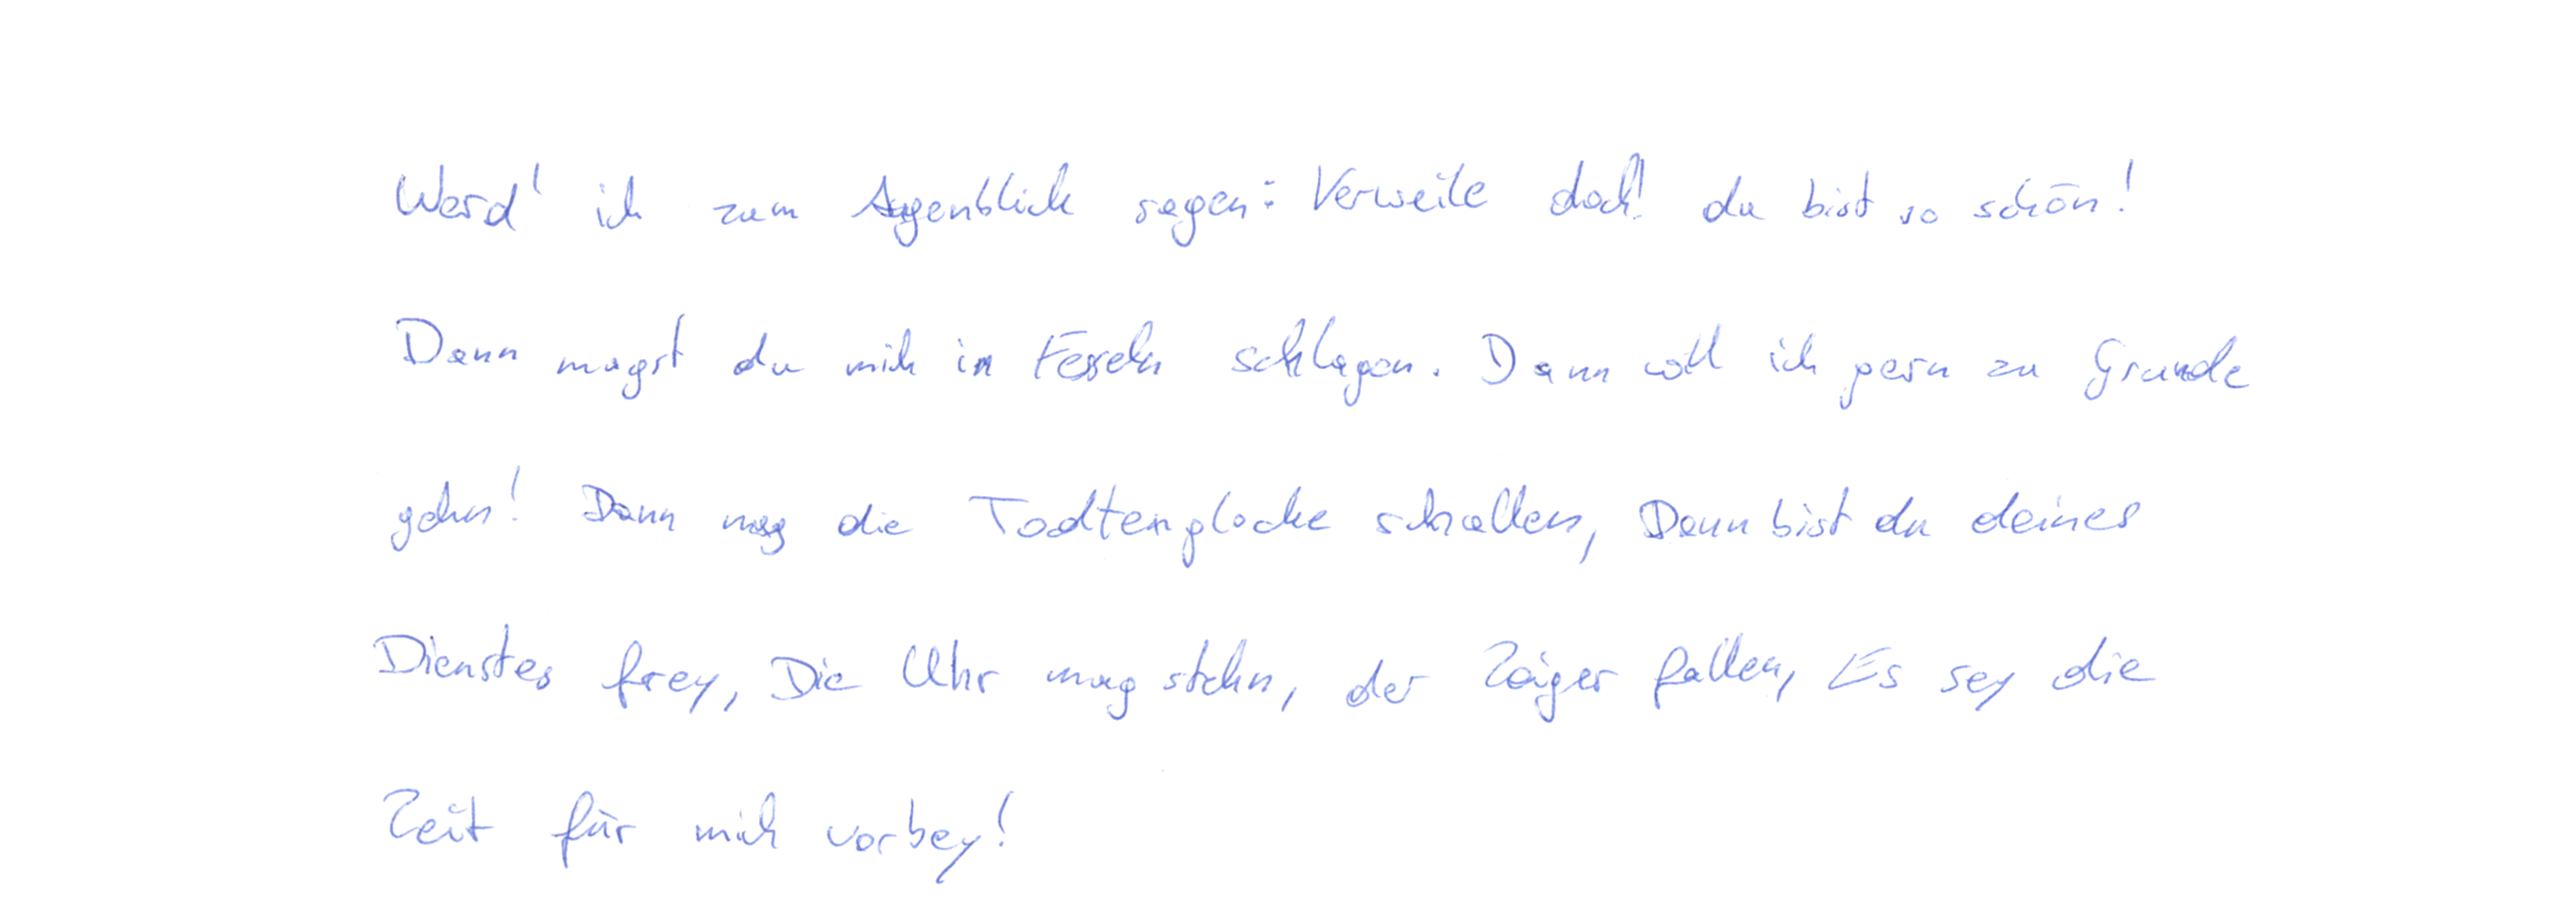 Werd' ich zum Augenblick sagen: Verweile doch! du bist so schön!
Dann magst du mich in Fesseln schlagen. Dann will ich gern zu Grunde
gehn! Dann mag die Todtenglocke schallen, Dann bist du deines
Dienstes frey, Die Uhr mag stehn, der Zeiger fallen, Es sey die
Zeit für mich vorbey!